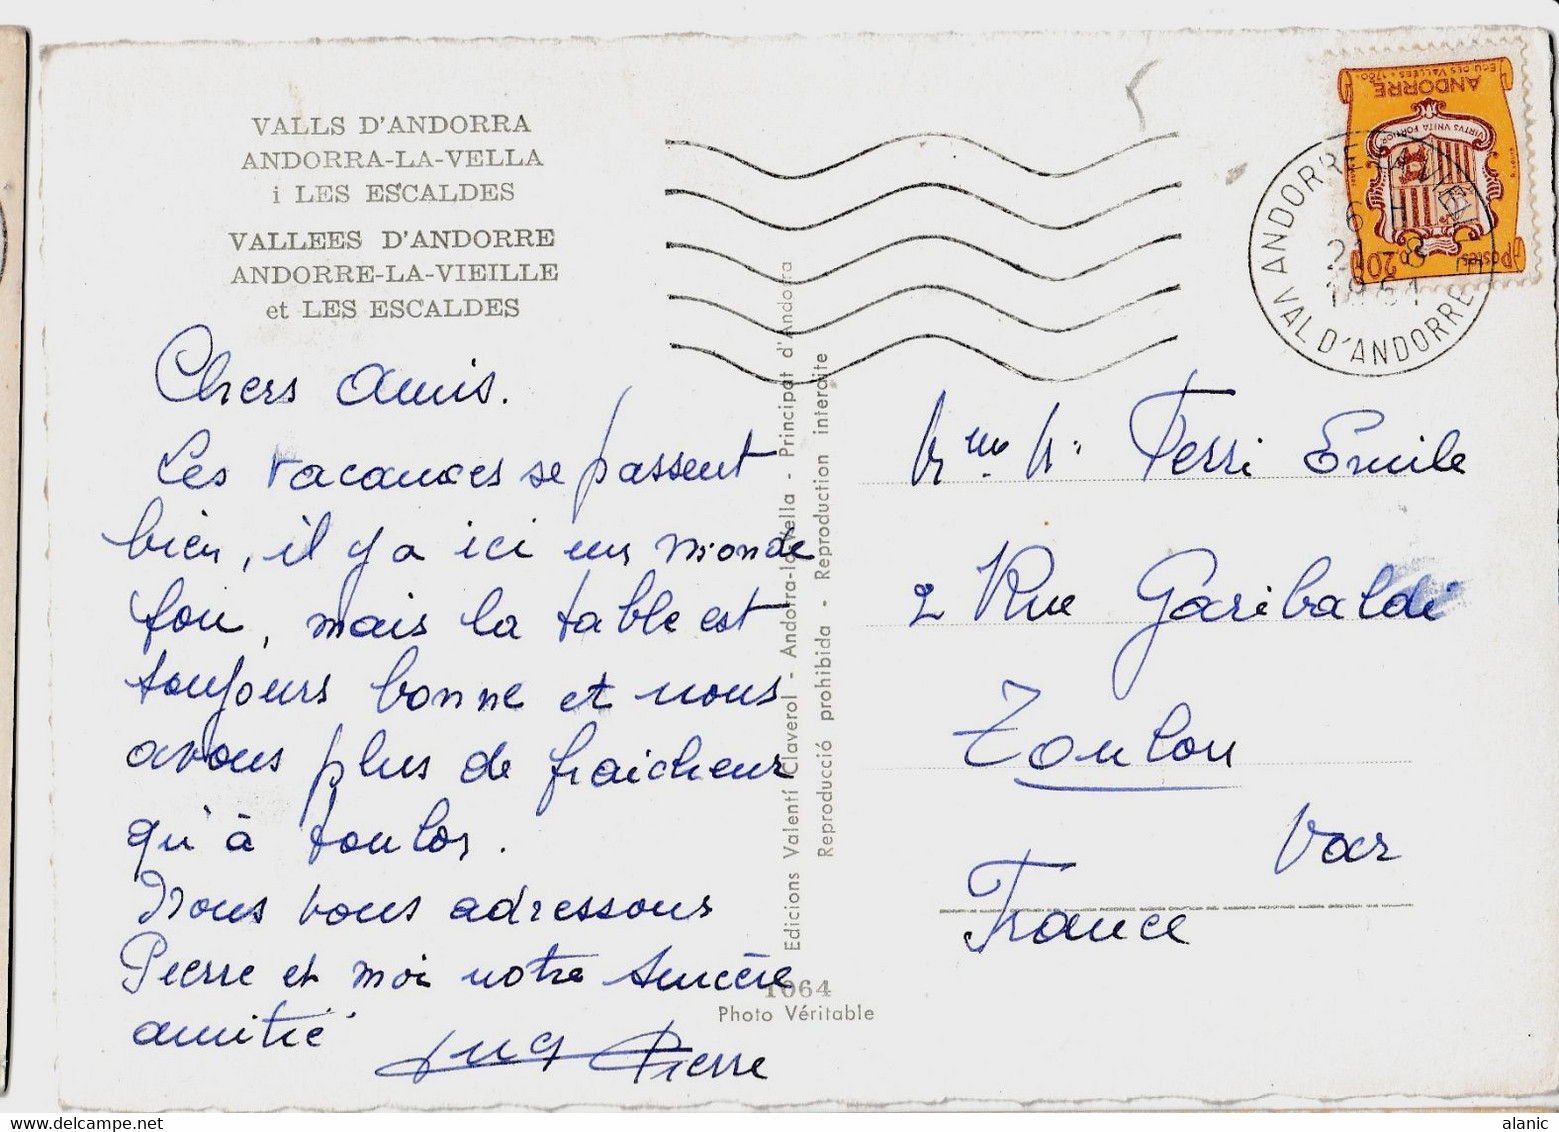 VALLS D'ANDORRA
ANDORRA-LA-VELLA
i LES ESCALDES
VALLEES D'ANDORRE
ANDORRE-LA-VIEILLE
et LES ESCALDES
Chers amis.
Les vacances se passent
bien, il y a ici un monde
fou, mais la table est
toujours bonne et nous
avons plus de fraicheur
qu'à toulon.
Nous vous adressons
Pierre et moi notre sincère
amitié
Pierre
Edicions Valentí Claverol - Andorra-la-Vella - Principat d'Andorra
Reproducció prohibida - Reproduction interdite
1064
Photo Véritable
ECU DES VALLÉES - 1760
ANDORRE
VIRTVS VNITA FORTIOR
0,20
POSTES
ANDORRE-LA-VIEILLE
VAL D'ANDORRE
Ferri Emile
2 Rue Garibaldi
Toulon
Var
France
alanic